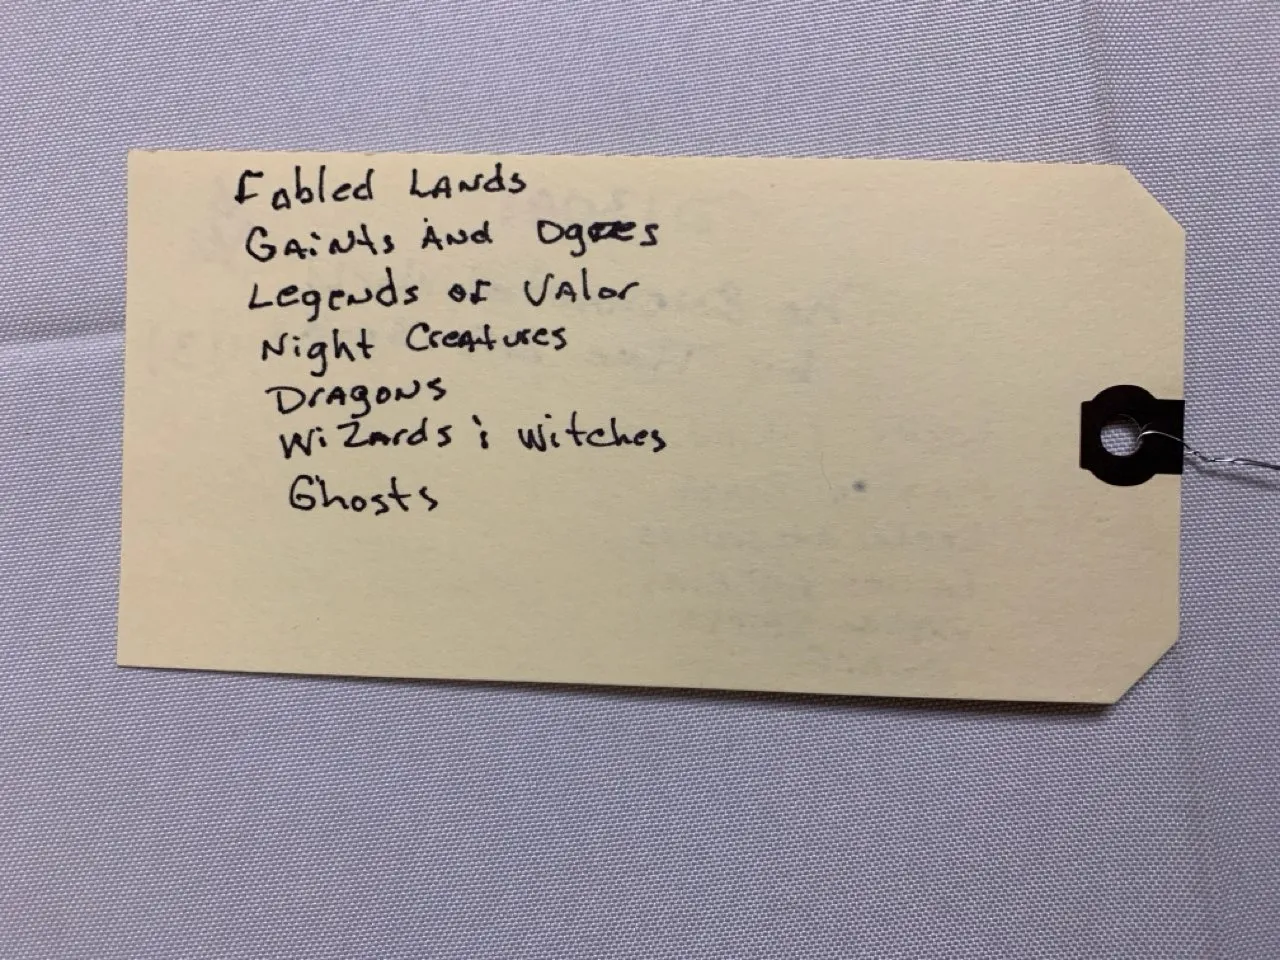 Fabled Lands
Gaints And Ogres
Legends of Valor
Night Creatures
Dragons
Wizards & Witches
Ghosts